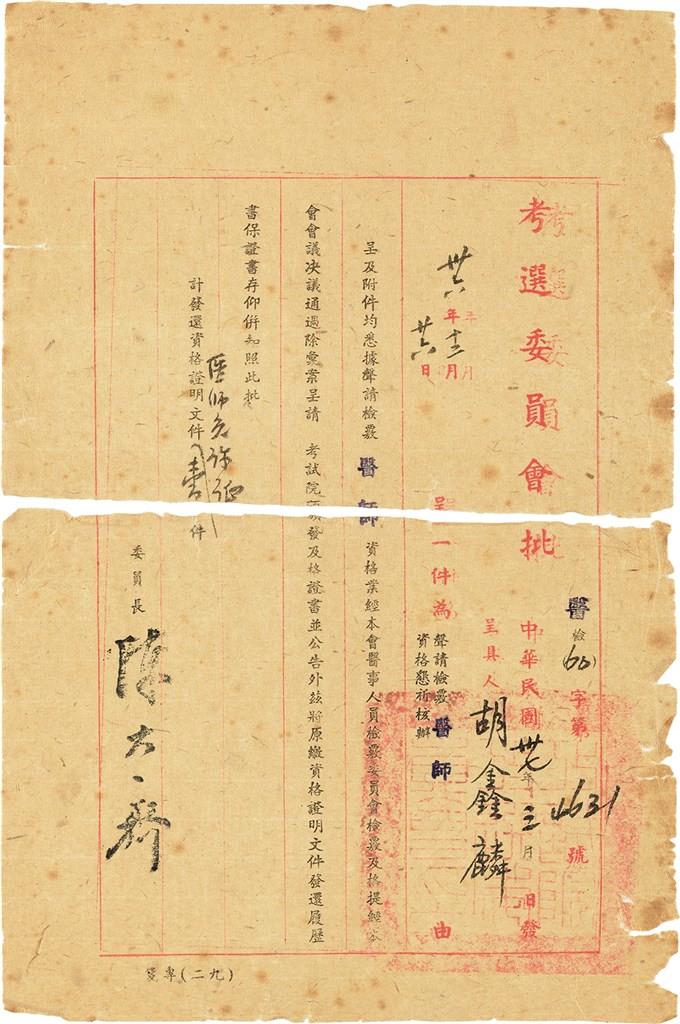 考選委員會批
醫檢(60)字第4631號
中華民國卅七年三月 日發
具呈人 胡鑫麟
卅六年十二月廿六日
呈一件為聲請檢覈醫師資格懇祈核辦由
呈及附件均悉據聲請檢覈醫師資格業經本會醫事人員檢覈委員會檢覈及格提經本
會會議決議通過除彙案呈請 考試院頒發及格證書並公告外茲將原繳資格證明文件發還履歷
書保證書存仰併知照此批
計發還資格證明文件(醫師允許證)壹件
委員長 陳大齊
(九二)專